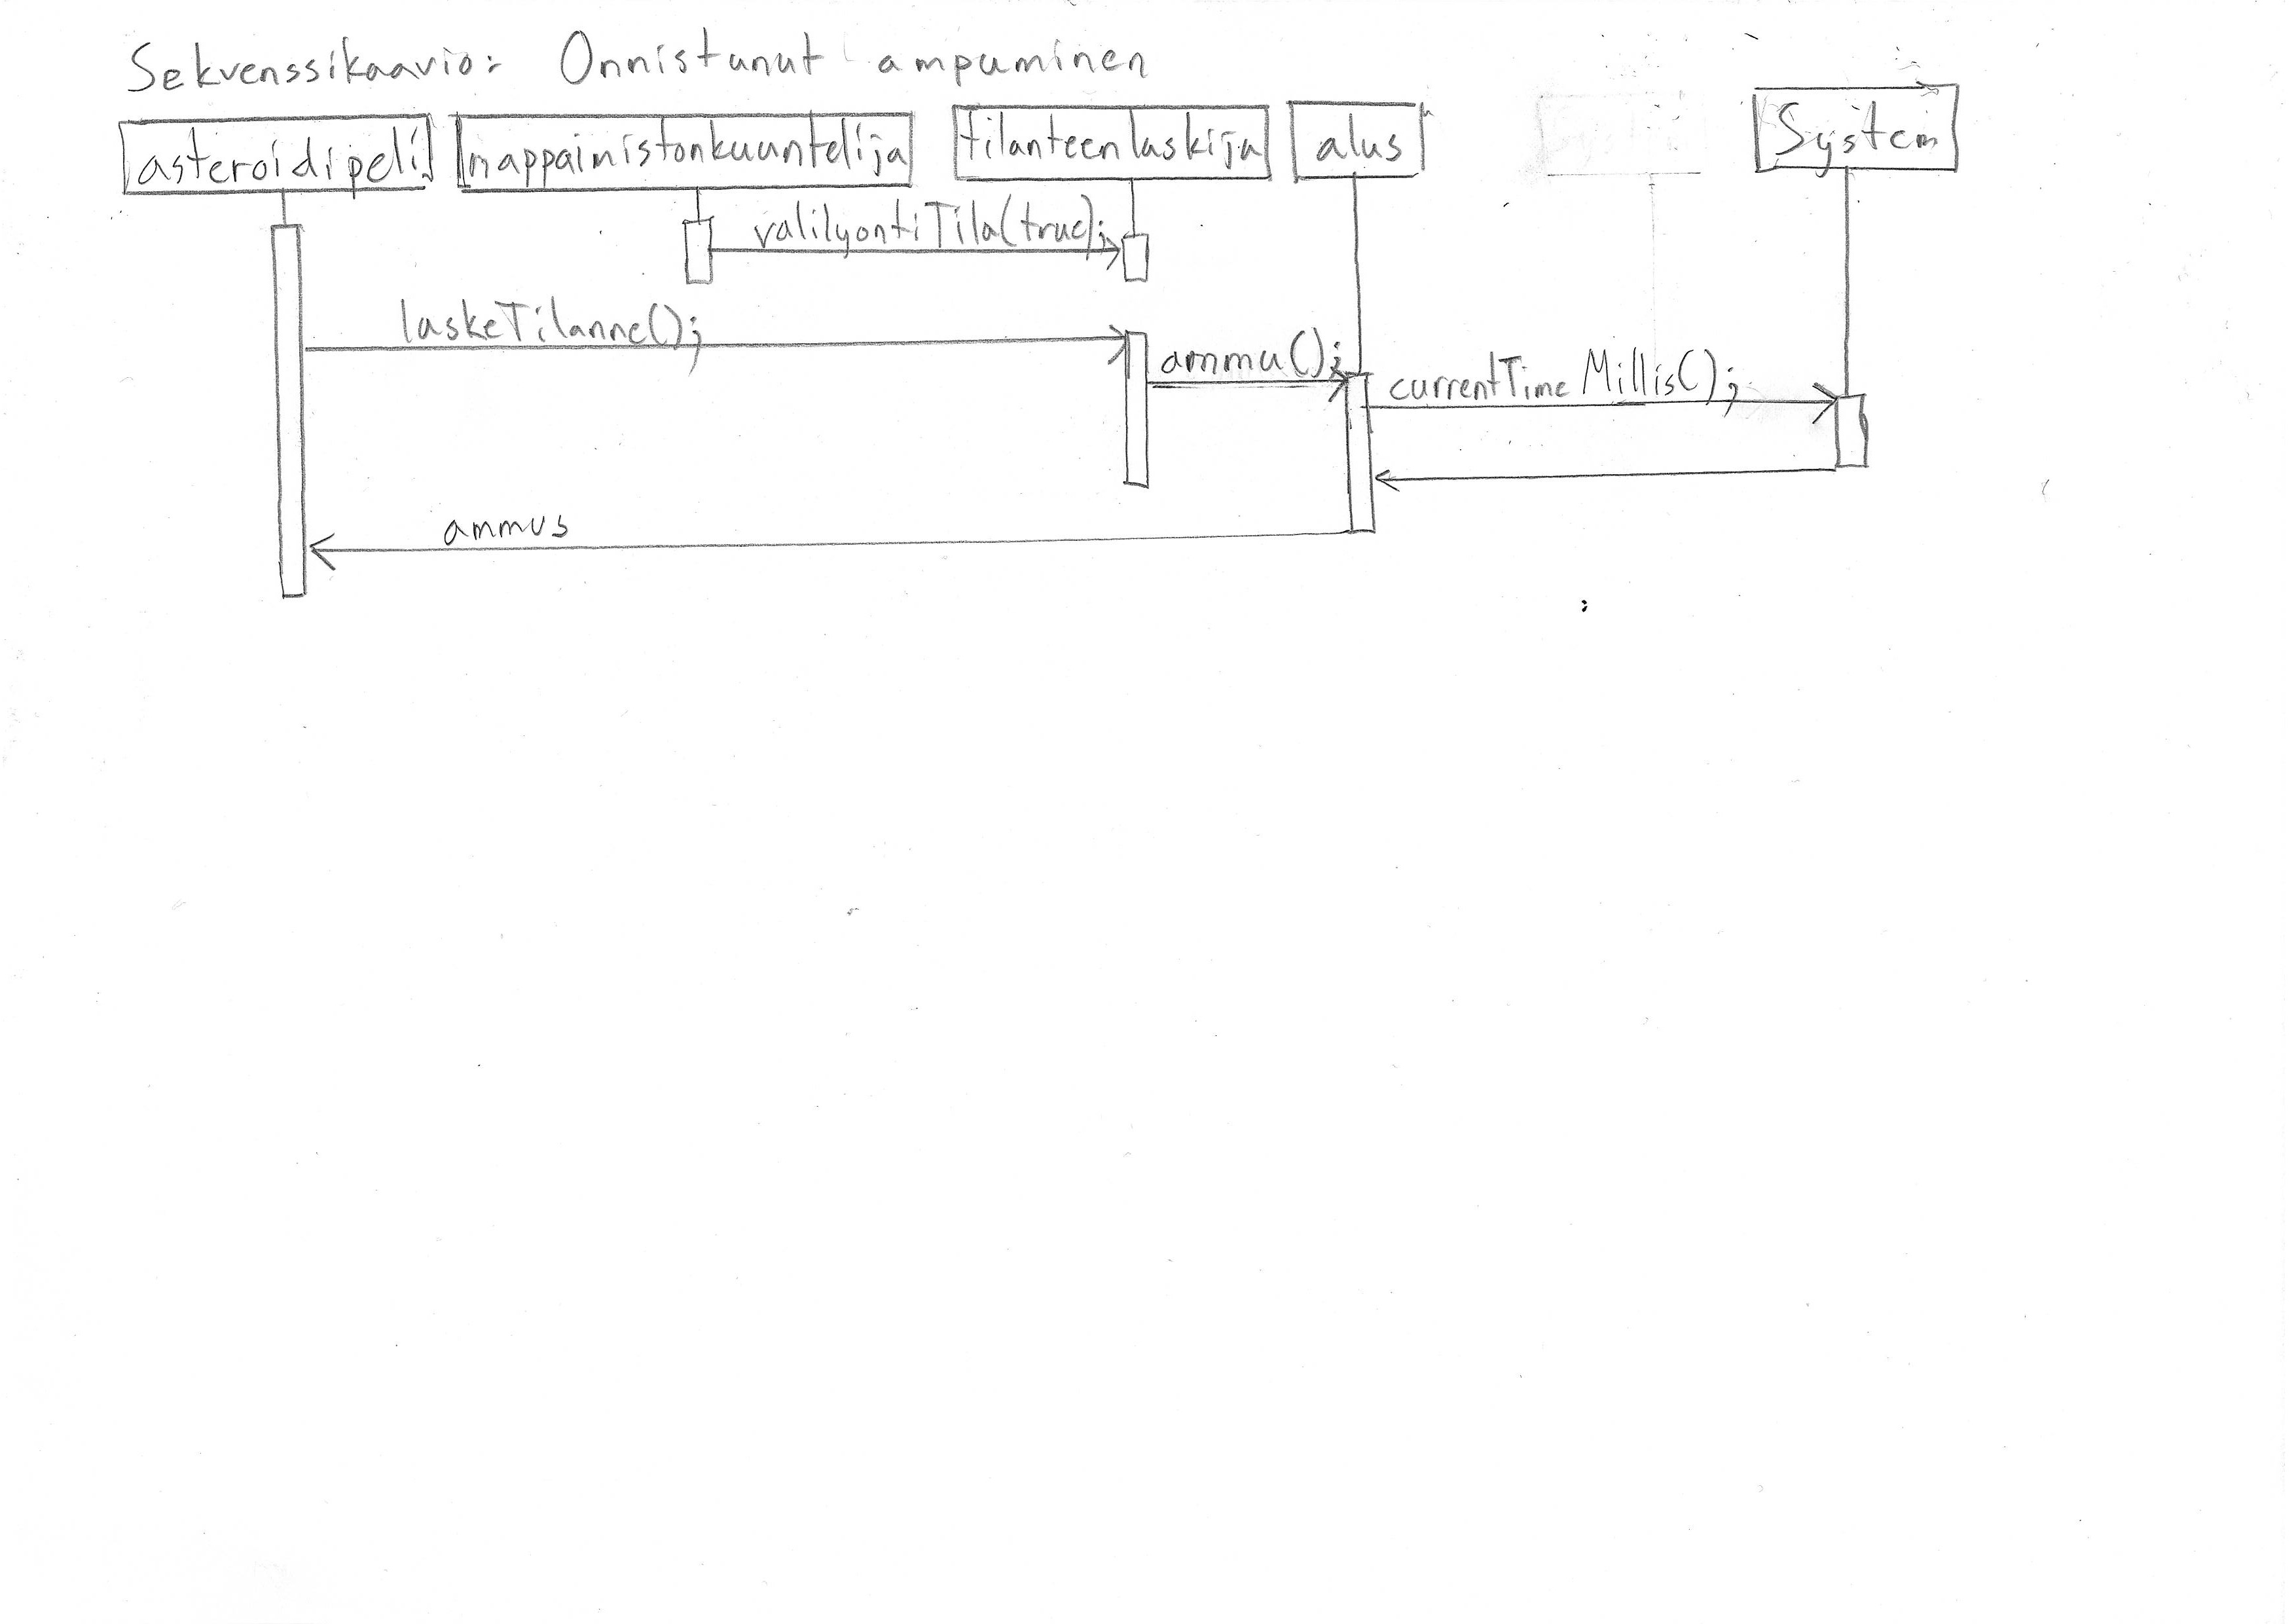 Sekvenssikaavio: Onnistunut ampuminen
asteroidipeli nappaimistonkuuntelija tilanteenlaskija alus System
valilyontiTila(true);
laskeTilanne();
ammu();
currentTimeMillis();
ammus